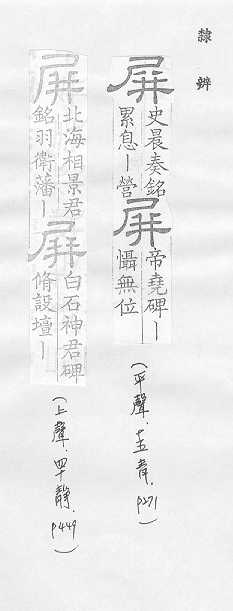 隸辨
屏
史晨奏銘
累息｜營
屏
帝堯碑｜
懾無位
(平聲．十五青．P271)
屏
北海相景君
銘羽衛藩｜
屏
白石神君碑
脩設壇｜
(上聲．四十靜．P449)